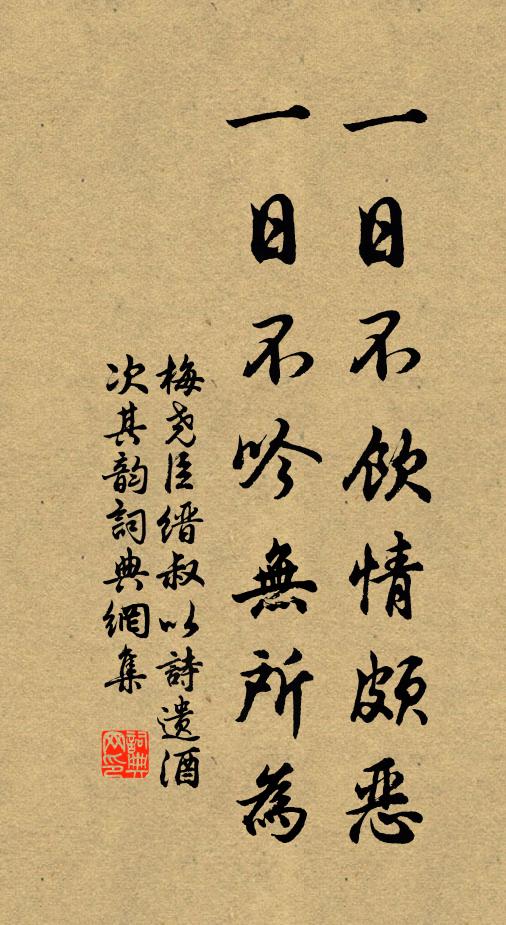 一日不飲情頗惡
一日不吟無所為
梅尧臣缙叔以詩遗酒
次其韵詞典網集
詞典网印